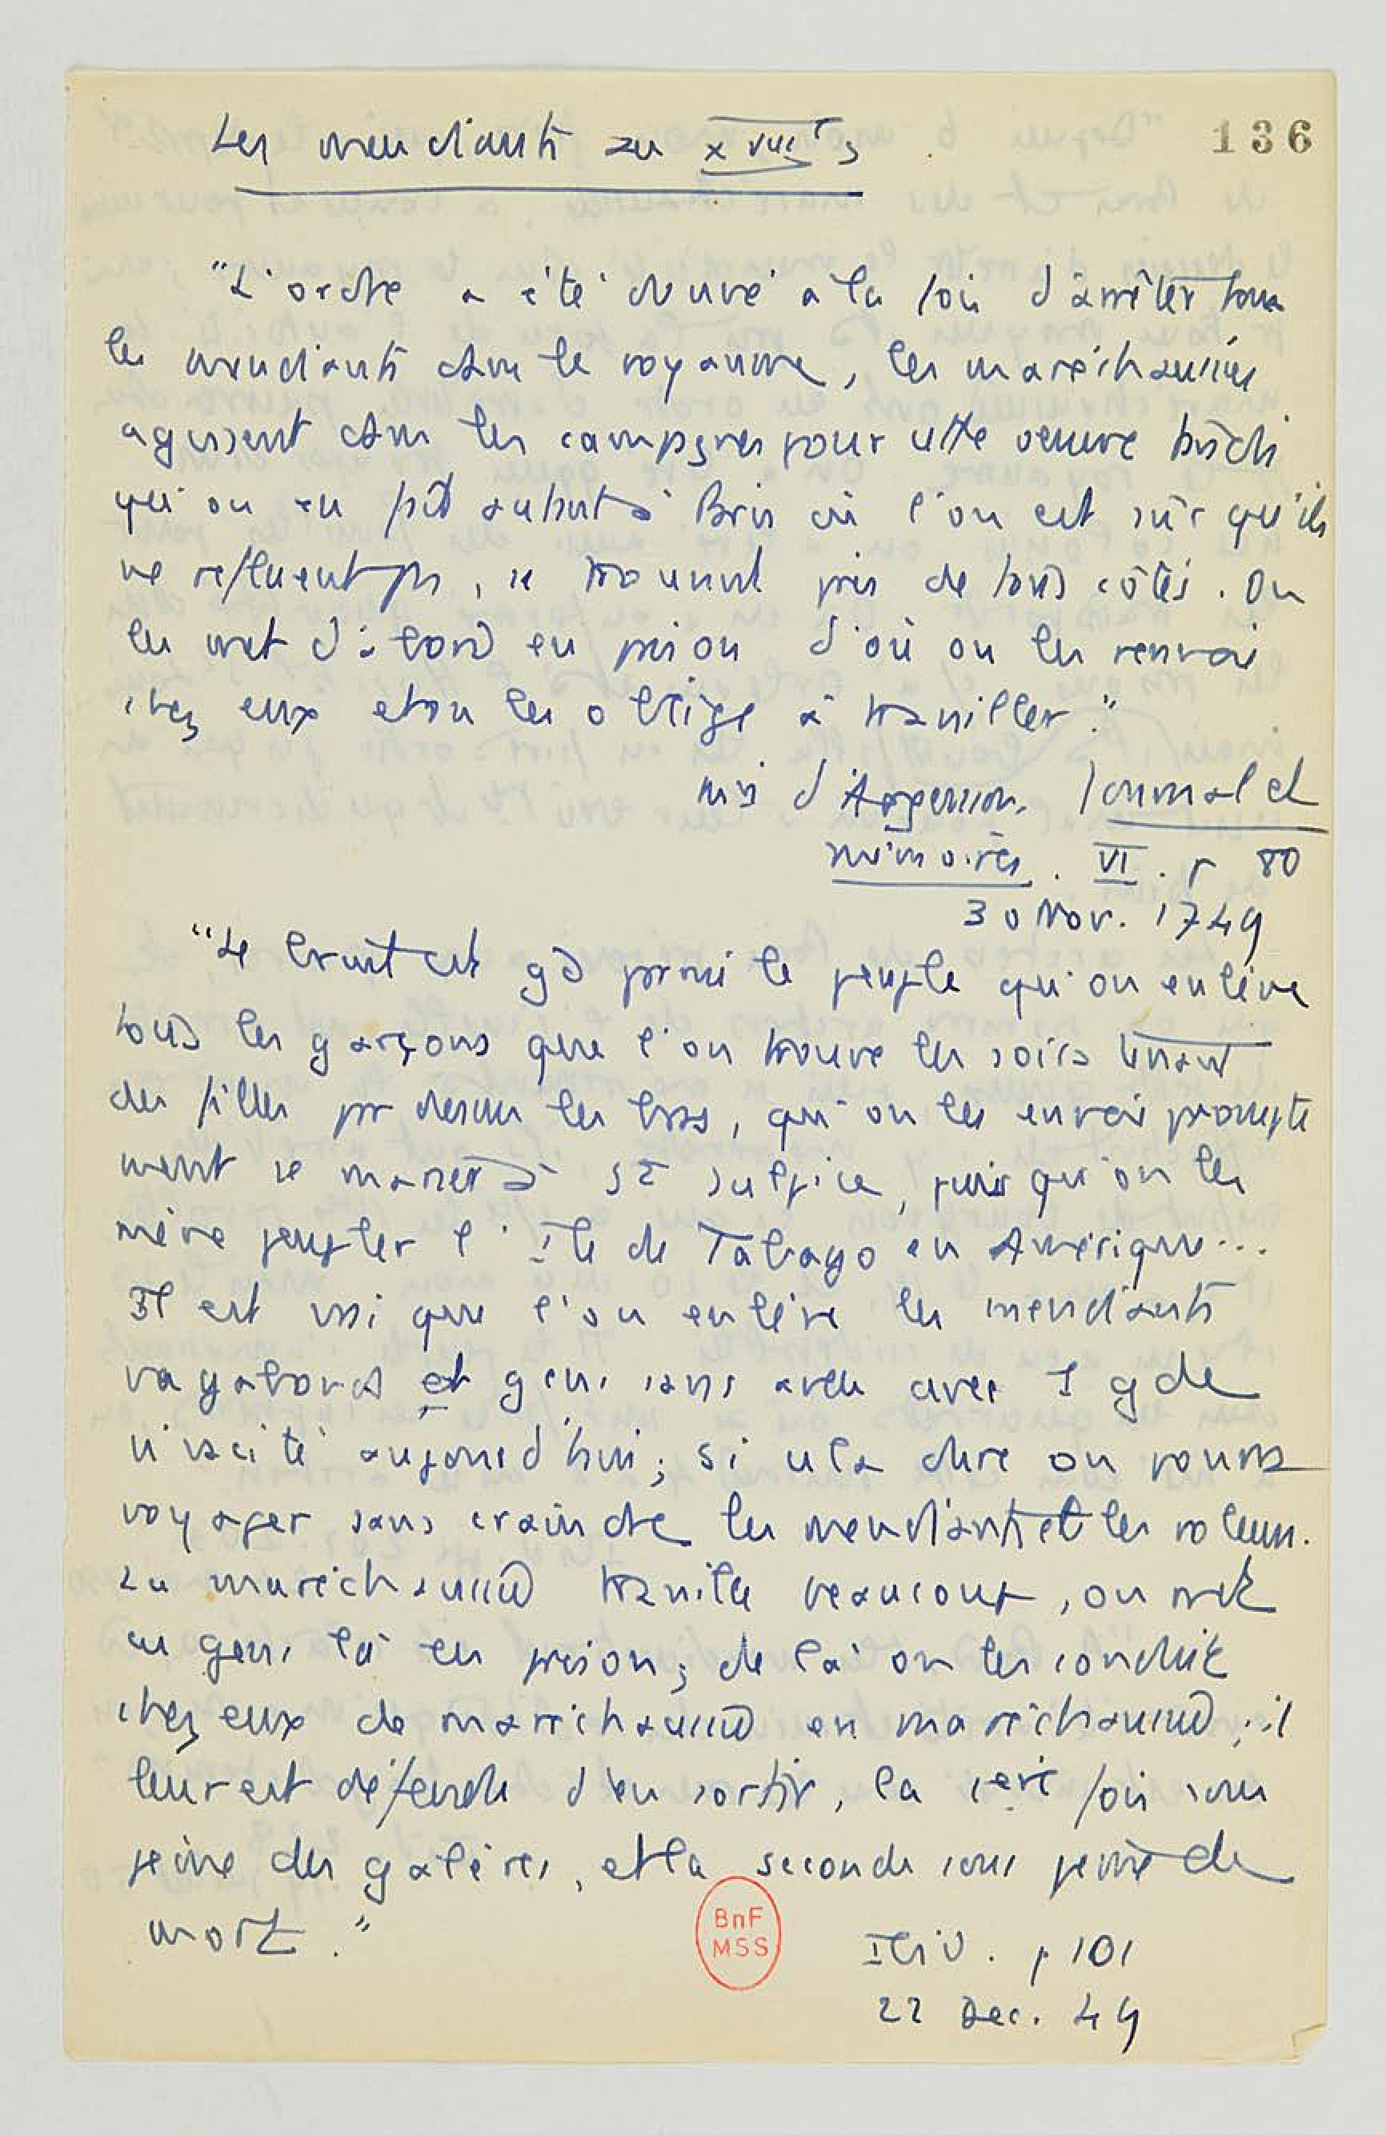 136
Les mendiants au XVIIIe s
"L'ordre a été donné à la fois d'arrêter tous
les mendiants dans le royaume, les maréchaussées
agissent dans les campagnes pour cette oeuvre tandis
qu'on en fait autant à Paris où l'on est sûr qu'ils
ne refluent pas, se trouvant pris de tous côtés. On
les met d'abord en prison d'où on les renvoie
chez eux et on les oblige à travailler."
Mis d'Argenson. Journal et
mémoires. VI. p 80
30 Nov. 1749
"Le bruit est gd parmi le peuple qu'on enlève
tous les garçons que l'on trouve les soirs tenant
des filles par dessus les bras, qu'on les envoie prompte
ment se marier à St Sulpice, puis qu'on les
mène peupler l'Ile de Tabago en Amérique...
Il est vrai que l'on enlève les mendiants
vagabonds et gens sans aveu avec 1 gde
vivacité aujourd'hui; si cela dure on pourra
voyager sans craindre les mendiants et les voleurs.
La maréchaussée travaille beaucoup, on met
ces gens là en prison; de là on les conduit
chez eux de maréchaussée en maréchaussée, il
leur est défendu d'en sortir, la 1ère fois sous
peine des galères, et la seconde sous peine de
mort."
Ibid. p 101
22 Dec. 49
BnF
MSS